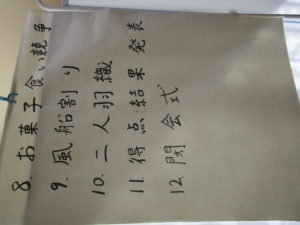 8. お菓子食い競争
9. 風船割り
10. 二人羽織
11. 得点結果発表
12. 閉会式